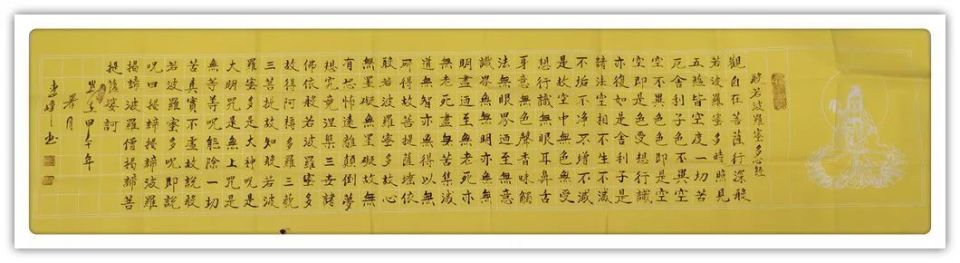 般若波羅蜜多心經
觀自在菩薩行深般
若波羅蜜多時照見
五蘊皆空度一切苦
厄舍利子色不異空
空不異色色即是空
空即是色受想行識
亦復如是舍利子是
諸法空相不生不滅
不垢不淨不增不減
是故空中無色無受
想行識無眼耳鼻舌
身意無色聲香味觸
法無眼界乃至無意
識界無無明亦無無
明盡乃至無老死亦
無老死盡無苦集滅
道無智亦無得以無
所得故菩提薩埵依
般若波羅蜜多故心
無罣礙無罣礙故無
有恐怖遠離顛倒夢
想究竟涅槃三世諸
佛依般若波羅蜜多
故得阿耨多羅三藐
三菩提故知般若波
羅蜜多是大神咒是
大明咒是無上咒是
無等等咒能除一切
苦真實不虛故說般
若波羅蜜多咒即說
咒曰揭諦揭諦波羅
揭諦波羅僧揭諦菩
提薩婆訶
甲午年
月
書